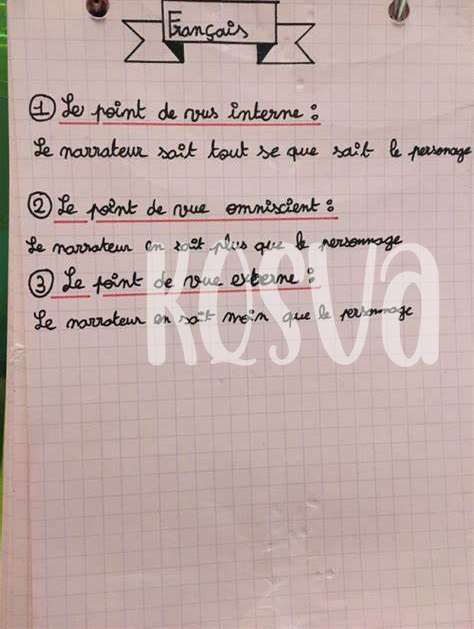 Français
① Le point de vus interne :
Le narrateur sait tout se que sait le personage
② Le point de vue omniscient :
Le narrateur en sait plus que le personnage
③ Le point de vue externe :
Le narrateur en sait moin que le personnage
KQSVA